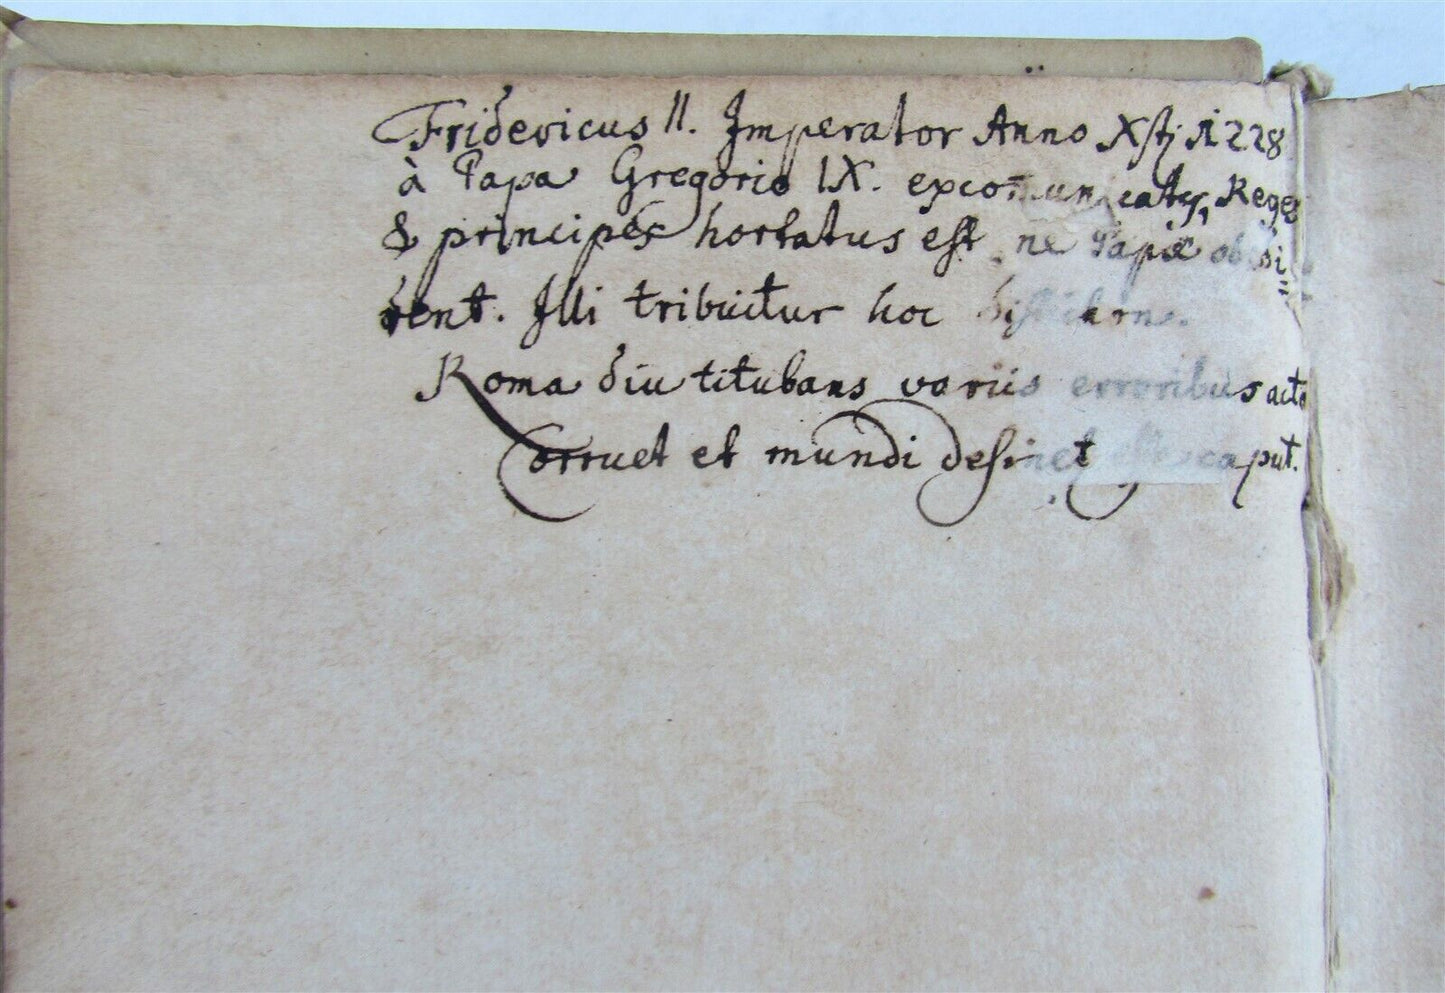 Fridericus II. Imperator Anno Xsti 1228
à Papa Gregorio IX. excom̄unicatus, Reges
& principes hortatus est, ne Papæ obedi=
rent. Illi tribuitur hoc distichon.
Roma diu titubans variis erroribus acta
Corruet et mundi desinet esse caput.